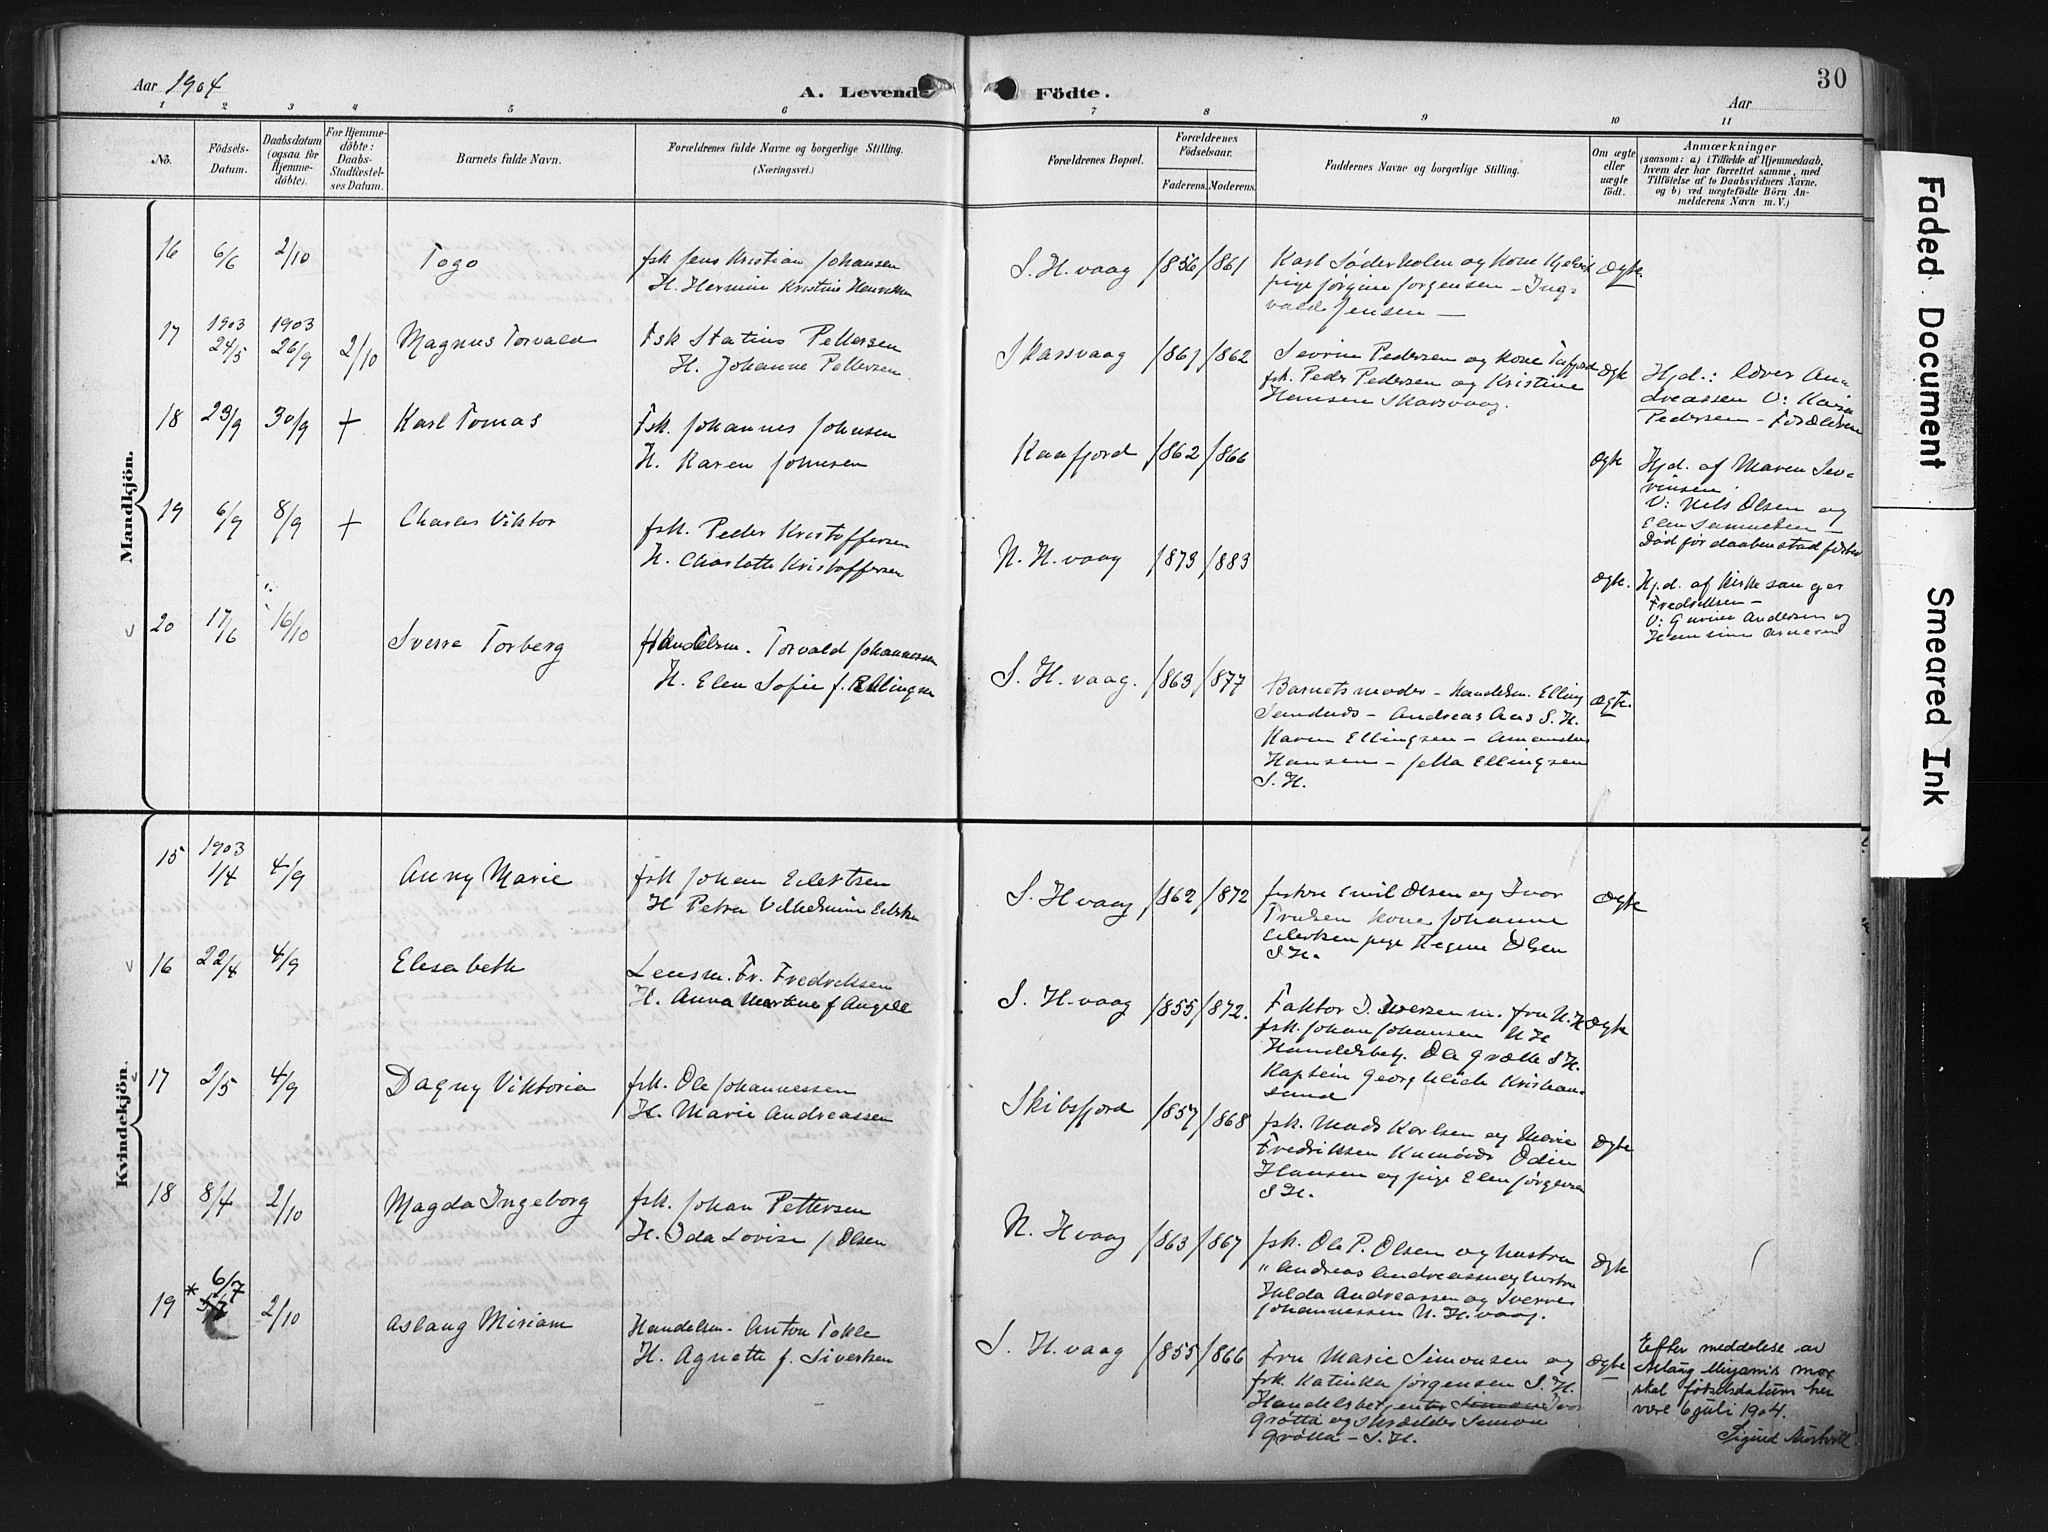 Aar 1904
A. Levende
Födte.
Aar
30
1 2 3 4 5 6 7 8 9 10 11
No.
Födsels-
Datum.
Daabsdatum
(ogsaa for
Hjemme-
döbte).
For Hjemme-
döbte:
Daabs-
Stadfæstel-
ses Datum.
Barnets fulde Navn.
Forældrenes fulde Navne og borgerlige Stilling.
(Næringsvei.)
Forældrenes Bopæl.
Forældrenes
Födselsaar.
Faderens.
Moderens.
Faddernes Navne og borgerlige Stilling.
Om ægte
eller
uægte
födt.
Anmærkninger
(saasom: a) i Tilfælde af Hjemmedaab,
hvem der har forrettet samme, med
Tilföielse af to Daabsvidners Navne,
og b) ved uægtefödte Börn An-
melderens Navn m. V.)
Mandkjön.
16 6/6 2/10 Togo
fsk Jens Kristian Johansen
H. Hermine Kristine Henriksen
S. H. vaag 1856 1861
Karl Søderholm og kone
pige Jørgine Jørgensen – Ing-
vald Jensen –
Ægte.
17 1903 24/5 1903 26/9 2/10 Magnus Torvald
Fsk Statius Pettersen
H. Johanne Pettersen
Skarsvaag 1861 1862
Sevrin Pedersen og kone
fsk. Peder Pedersen og Kristine
Hansen Skarsvaag.
Ægte
Hjd.: lærer An-
dreassen V: Kaisa
Pedersen – Forældrene
18 23/9 30/9 + Karl Tomas
Fsk. Johannes Johnsen
H. Karen Johnsen
Kaafjord 1862 1866
Ægte
Hjd. af Maren Sev-
rinsen
V: Nils Olsen og
Elen Samuelsen –
Død før daaben stadfæstet
19 6/9 8/9 + Charles Viktor
fsk. Peder Kristoffersen
H. Charlotte Kristoffersen
N. H. vaag 1873 1883
Ægte.
Hjd. af kirkesanger
Fredriksen –
V: Gurine Andersen og
Hansine Arnesen
20 17/6 16/10 Sverre Torberg
Handelsm. Torvald Johannessen
H. Elen Sofie f. Ellingsen
S. H. vaag. 1863 1877
Barnets moder – Handelsm. Elling
– Andreas Aas S. H.
Karen Ellingsen – Amandus
Hansen – Jetta Ellingsen
S. H.
Ægte.
Kvindekjön.
15 1903 1/4 4/9 Anny Marie
fsk Johan Eilertsen
H Petra Vilhelmine Eilertsen
S. H vaag 1862 1872
fiskere Emil Olsen og Ivor
Trulsen kone Johanne
Eilertsen pige Regine Olsen
S H.
Ægte
16 22/4 4/9 Elisabeth
Lensm. Fr. Fredriksen
H. Anna Martine f Angell
S. H. vaag 1855 1872.
Faktor I. Iversen m. fru N. H
fsk. Johan Johansen N H
Handelsbetj. Ole Grøtte S H.
Kaptein Georg Ulich Kristian-
sund
Ægte
17 2/5 4/9 Dagny Viktoria
fsk. Ole Johannessen
H. Marie Andreassen
Skibsfjord 1857 1868
fsk. Mads Karlsen og Marie
Fredriksen Kamøvær Odin
Hansen og pige Elen Jørgensen
S H.
Ægte
18 8/4 2/10 Magda Ingeborg
fsk. Johan Pettersen
H. Ida Lovise f Olsen
N. H vaag 1863 1867
fsk. Ole P. Olsen og hustru
" Andreas Andreassen og hustru
Hulda Andreassen og Sverre
Johannessen N. H. vaag.
Ægte
* 6/7
19 5/7 2/10 Aslaug Miriam
Handelsm. Anton Tokle
H. Agnette f. Sivertsen
S. H. vaag 1855 1866
Fru Marie Simonsen og
fsk. Katinka Jørgensen S. H.
Handelsbetjenter Simon Ivor
Grøtta og Skrædder Simon
Grøtta – S. H.
Ægte
Efter meddelelse av
Aslaug Mirjams mor
skal fødselsdatum her
være 6 juli 1904.
Sigurd
Faded Document
Smeared Ink